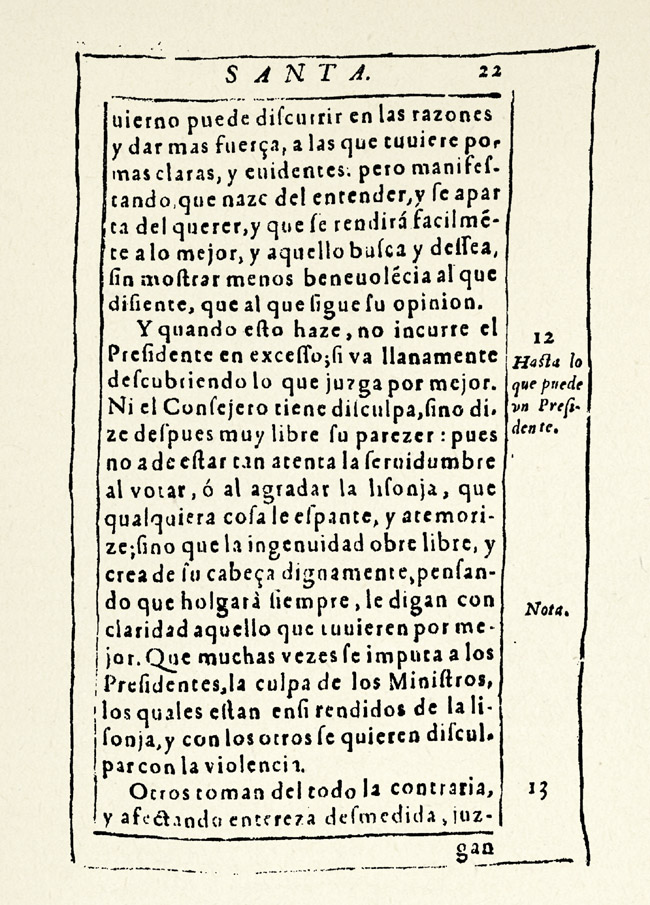 SANTA. 22
uierno puede diſcurrir en las razones
y dar mas fuerça, a las que tuuiere por
mas claras, y euidentes: pero manifeſ-
tando, que naze del entender, y ſe apar
ta del querer, y que ſe rendirá facilmẽ-
te a lo mejor, y aquello buſca y deſſea,
ſin moſtrar menos beneuolẽcia al que
diſiente, que al que ſigue ſu opinion.
Y quando eſto haze, no incurre el
Preſidente en exceſſo; ſi va llanamente
deſcubriendo lo que juzga por mejor.
Ni el Conſejero tiene diſculpa, ſino di-
ze deſpues muy libre ſu parezer: pues
no a de eſtar tan atenta la ſeruidumbre
al votar, ó al agradar la liſonja, que
qualquiera coſa le eſpante, y atemori-
ze; ſino que la ingenuidad obre libre, y
crea de ſu cabeça dignamente, penſan-
do que holgarà ſiempre, le digan con
claridad aquello que tuuieren por me-
jor. Que muchas vezes ſe imputa a los
Preſidentes, la culpa de los Miniſtros,
los quales eſtan enſi rendidos de la li-
ſonja, y con los otros ſe quieren diſcul-
par con la violencia.
Otros toman del todo la contraria,
y afectando entereza deſmedida, juz-
gan
12
Haſta lo
que puede
vn Preſi-
dente.
Nota.
13